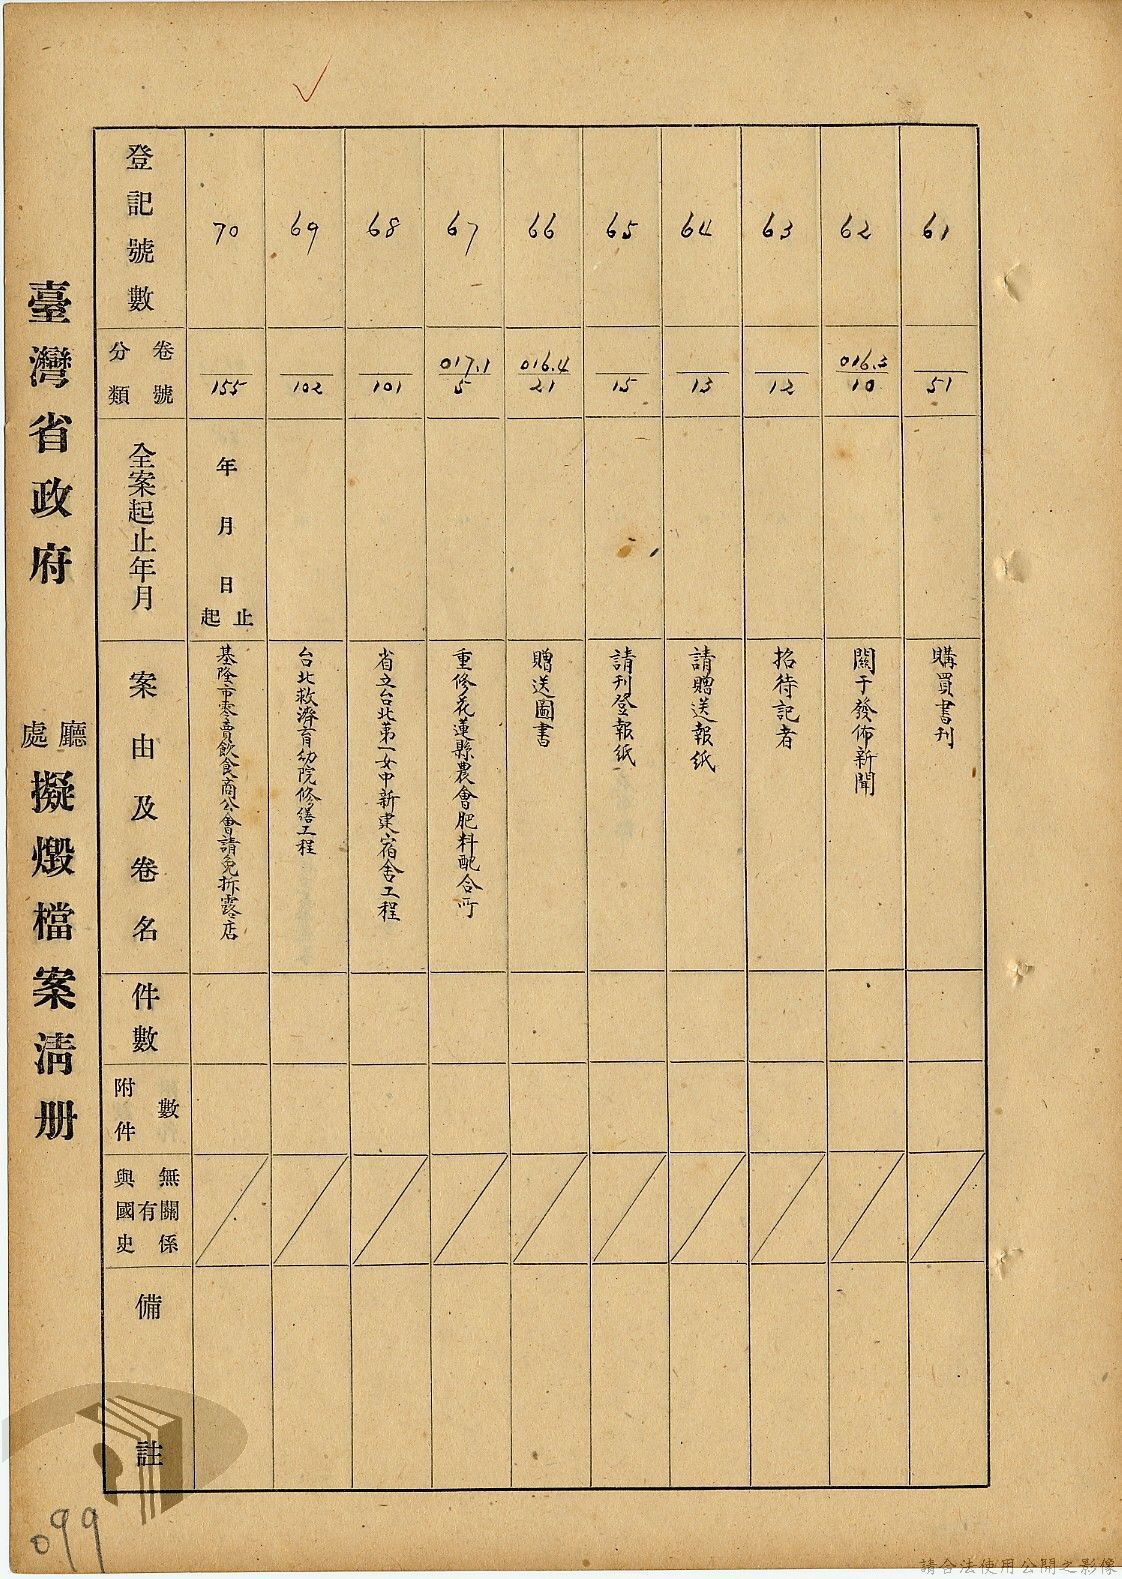 臺灣省政府 廳處 擬燬檔案清册
登記號數
卷號 分類
全案起止年月
案由及卷名
件數
附件數
與國史有無關係
備註
61
51
購買書刊
62
016.3
10
關于發佈新聞
63
12
招待記者
64
13
請贈送報紙
65
15
請刊登報紙
66
016.4
21
贈送圖書
67
017.1
5
重修花蓮縣農會肥料配合所
68
101
省立台北第一女中新建宿舍工程
69
102
台北救濟育幼院修繕工程
70
155
年月日起止
基隆市零賣飲食商公會請免拆露店
099
請合法使用公開之影像